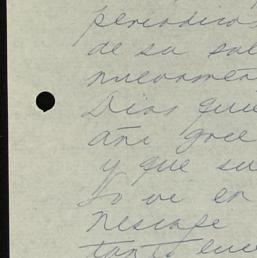 periodicos
de su sal
nuevamen
Dios que
ani goce
y que su
Yo ve en
nescafe
tanto que